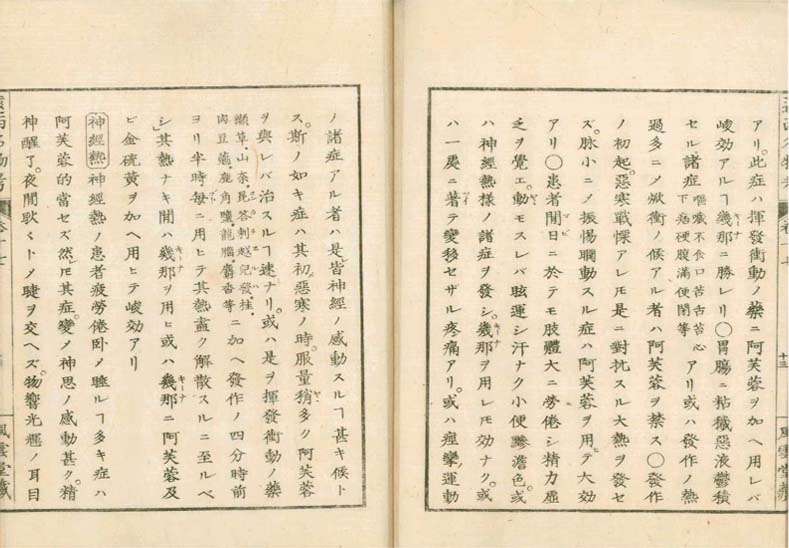 アリ。此症ハ揮發衝動ノ藥ニ阿芙蓉ヲ加ヘ用レバ
峻効アルヿ幾那ニ勝レリ〇胃腸ニ粘穢惡液鬱積
セル諸症嘔嘰不食口苦舌苔心下痞硬腹滿便閉等アリ或ハ發作ノ熱
過多ニメ焮衝ノ候アル者ハ阿芙蓉ヲ禁ス〇發作
ノ初起。惡寒戰慄アレ𪜈是ニ對抗スル大熱ヲ發セ
ズ。脉小ニメ振惕瞤動スル症ハ阿芙蓉ヲ用テ大効
アリ〇患者間日ニ於テモ肢體大ニ勞倦シ精力虛
乏ヲ覺エ。動モスレバ眩運シ汗ナク小便黲澹色。或
ハ神經熱樣ノ諸症ヲ發シ。幾那ヲ用レ𪜈効ナク。或
ハ一處ニ著テ變移セザル疼痛アリ。或ハ痙攣運動
十三
風雲堂藏
ノ諸症アル者ハ是皆神經ノ感動スルヿ甚キ候ト
ス。斯ノ如キ症ハ其初惡寒ノ時。服量稍多ク阿芙蓉
ヲ與レバ治スルヿ速ナリ。或ハ是ヲ揮發衝動ノ藥
纈草。山柰。答剌越兒發。桂。肉豆蔲。鹿角鹽。龍腦。麝香等ニ加ヘ發作ノ四分時前
ヨリ半時每ニ用ヒテ其熱盡ク解散スルニ至ルベ
シ其熱ナキ間ハ幾那ヲ用ヒ或ハ幾那ニ阿芙蓉及
ビ金硫黃ヲ加ヘ用ヒテ峻効アリ
神經熱 神經熱ノ患者疲勞倦卧メ睡ルヿ多キ症ハ
阿芙蓉的當セズ然𪜈其症。變メ神思ノ感動甚ク。精
神醒了。夜間耿〻トメ睫ヲ交ヘズ。物響光耀ノ耳目
風雲堂藏